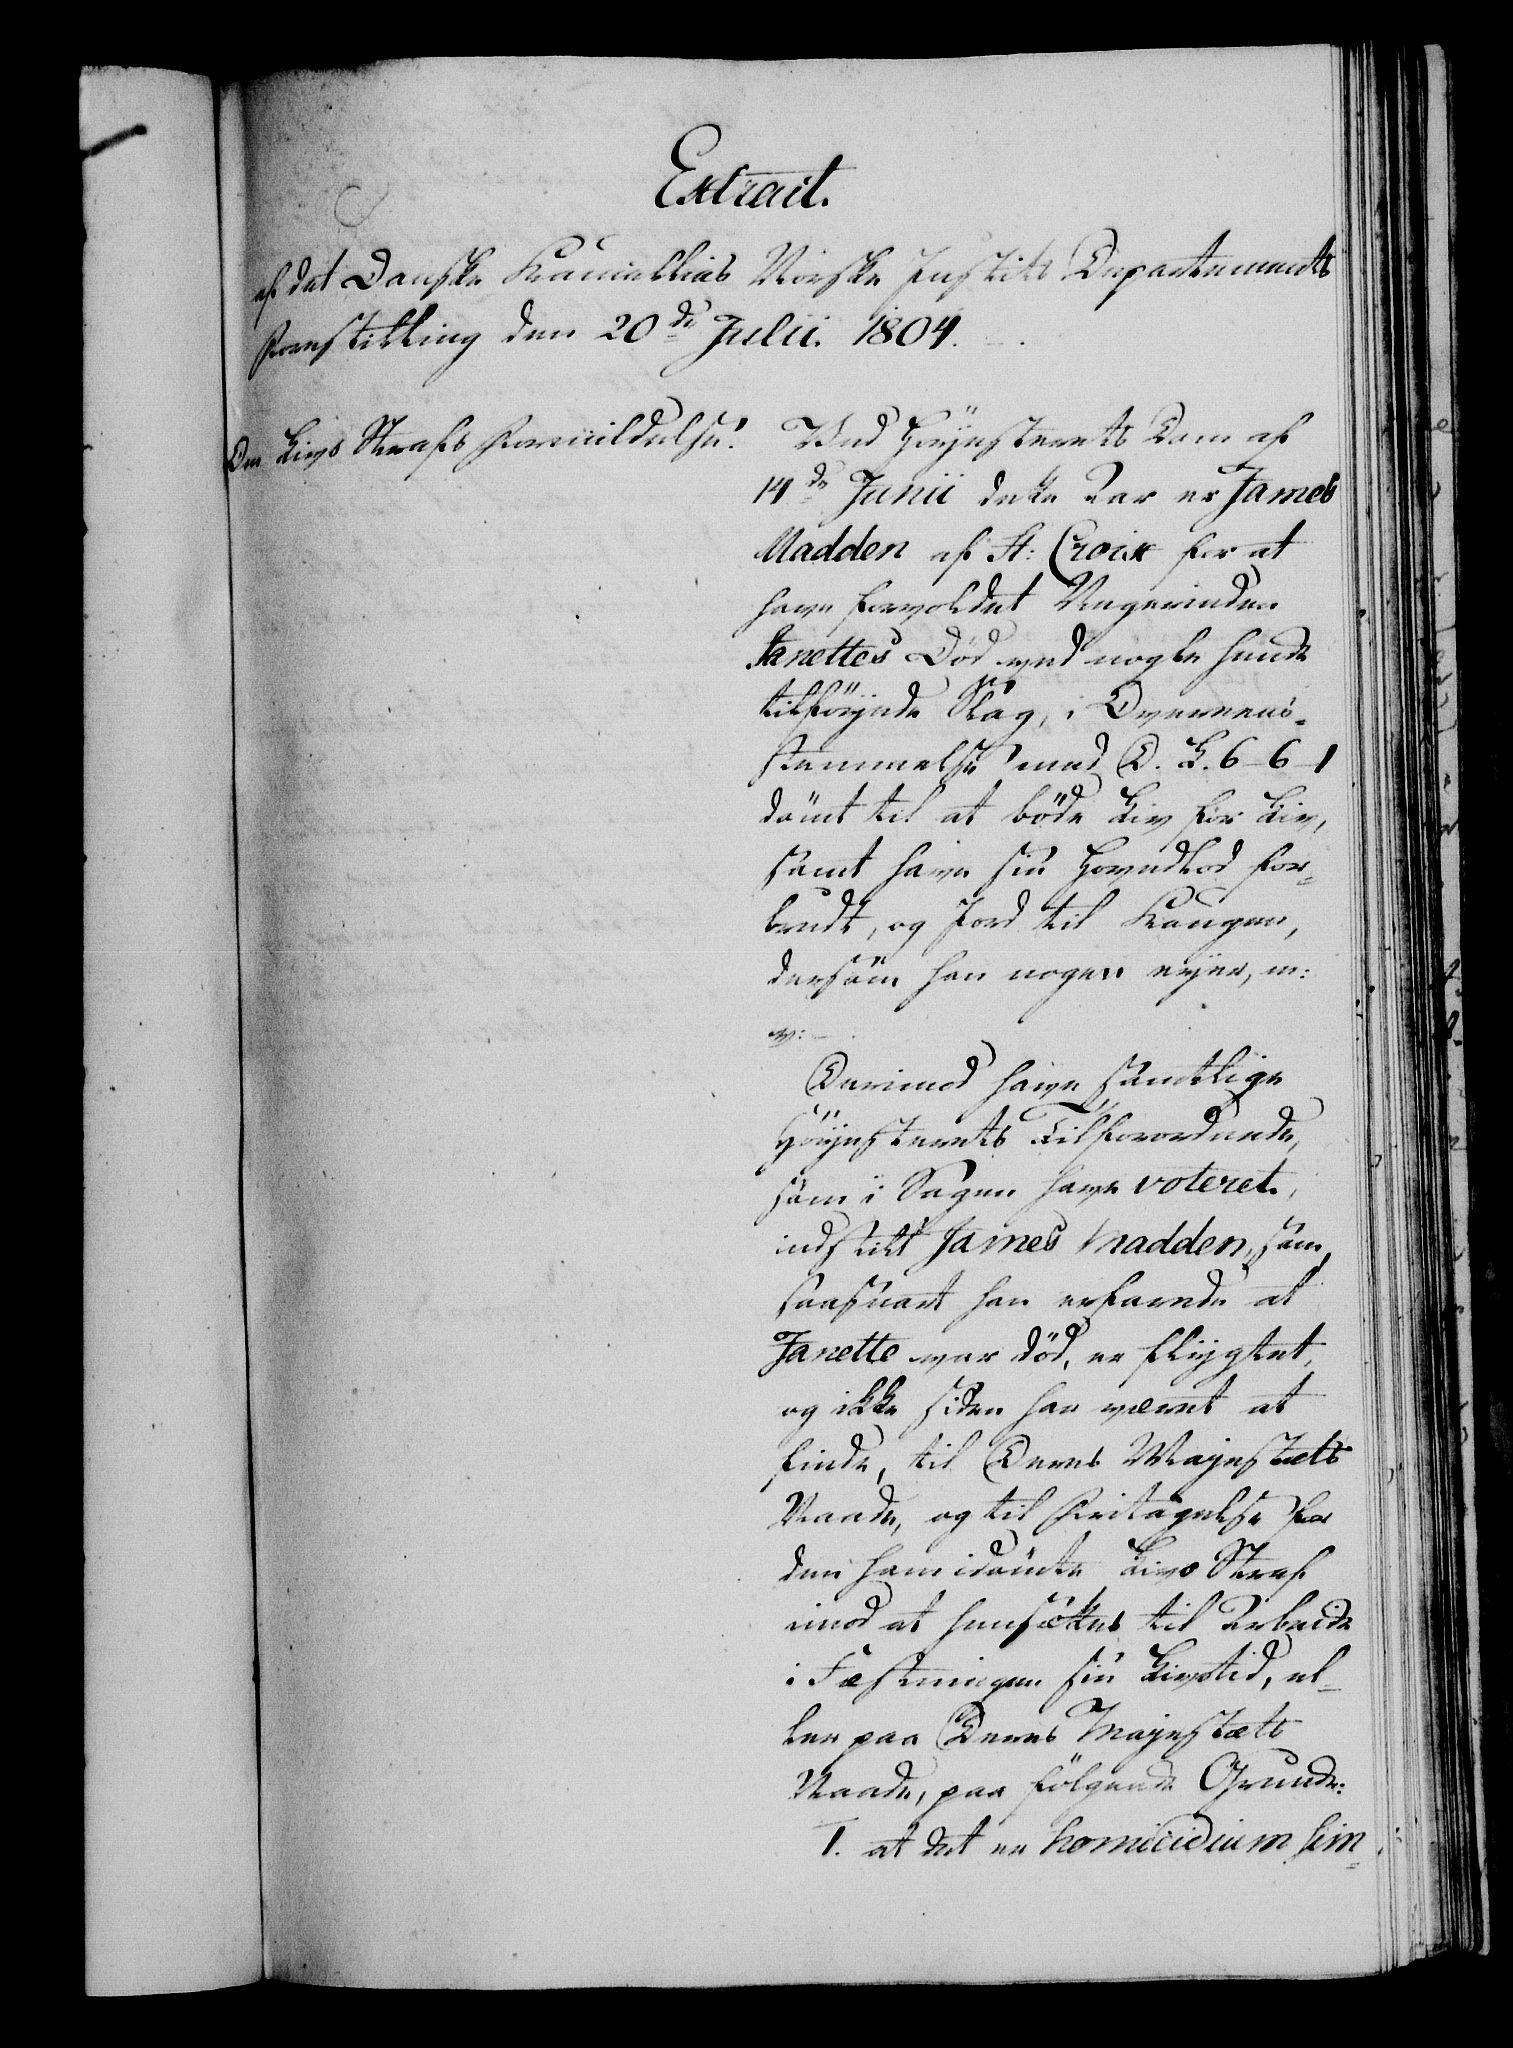 Extrait.
af det Danske Kancellies Norske Justits Departements
Forestilling den 20de Julii. 1804.
Om Livs Strafs Formildelse.
Ved Höyesterets Dom af
14de Junii dette Aar er James
Madden af St: Croix for at
have forvoldet Negerinden
Janettes Död ved nogle hende
tilföyede Slag, i Overeens-
stemmelse med D. L. 6-6-1
dömt til at böde Liv for Liv,
samt have sin Hovedlod for-
brudt, og Jord til Kongen,
dersom han nogen eyer, m:
v:
Derimod have samtlige
Höyesterets Tilforordnede,
som i Sagen have voteret,
indstilt James Madden, som,
saasnart han erfarede at
Janette var död, er flygtet,
og ikke siden har været at
finde, til Deres Majestæts
Naade, og til Fritagelse for
den ham idömte Livs Straf
imod at hensættes til Arbeide
i Fæstningen sin Livstid, el-
ler paa Deres Majestæts
Naade, paa fölgende Grunde:
1. at det er homicidium sim-